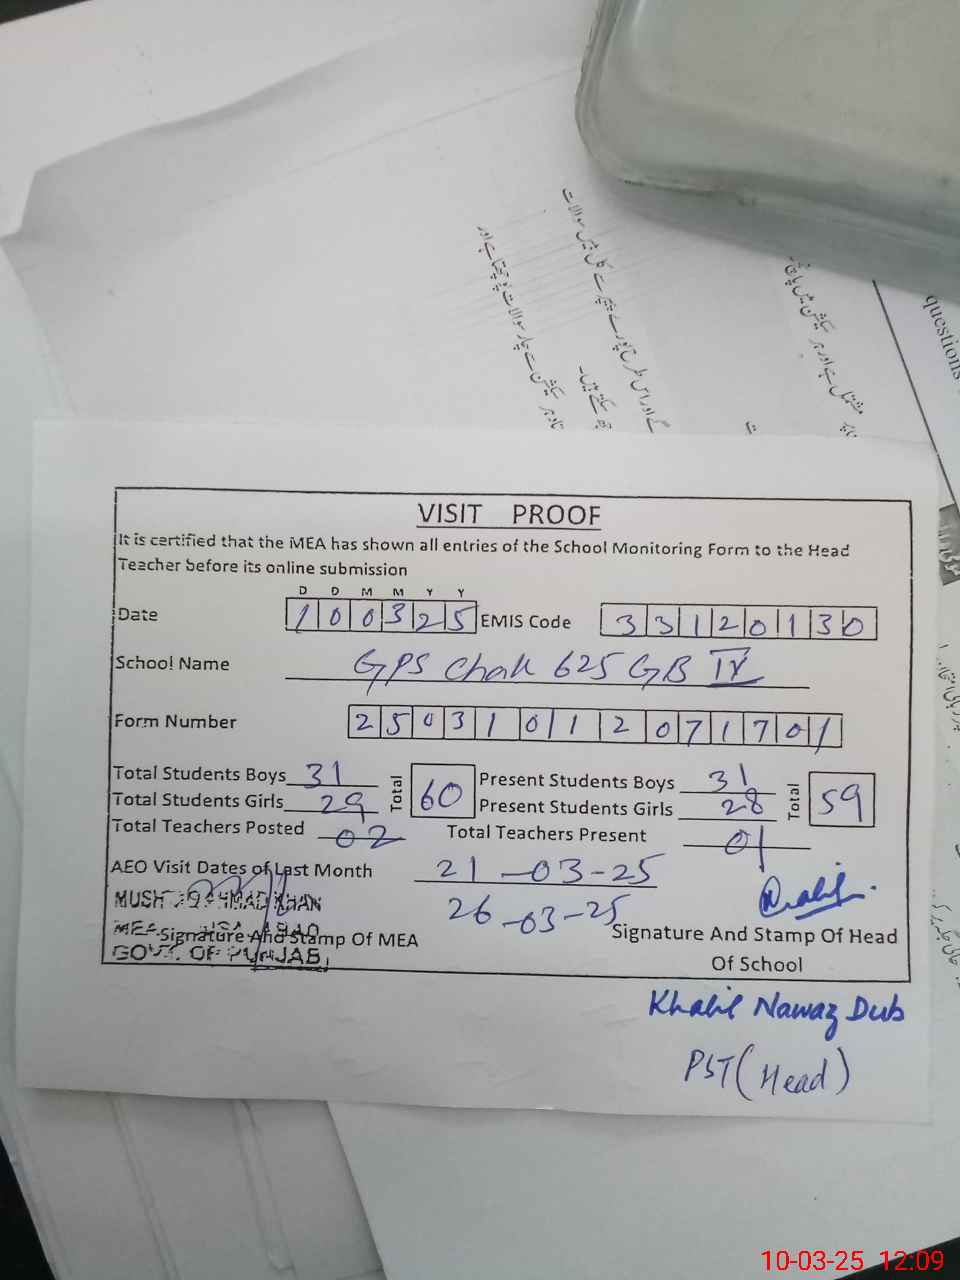 گے اور اس طرح پورے پیپر سے کل بیس سوالات
سکتے ہیں۔
questions
VISIT PROOF
It is certified that the MEA has shown all entries of the School Monitoring Form to the Head
Teacher before its online submission
D D M M Y Y
Date 1 0 0 3 2 5 EMIS Code 3 3 1 2 0 1 3 0
School Name GPS Chak 625 GB IV
Form Number 2 5 0 3 1 0 1 1 2 0 7 1 7 0 1
Total Students Boys 31 Total 60 Present Students Boys 31 Total 59
Total Students Girls 29 Present Students Girls 28
Total Teachers Posted 02 Total Teachers Present 01
AEO Visit Dates of Last Month 21-03-25
26-03-25
KHAN
Signature And Stamp Of MEA Signature And Stamp Of Head
GOVT. OF PUNJAB Of School
Khalil Nawaz Dub
PST (Head)
10-03-25 12:09